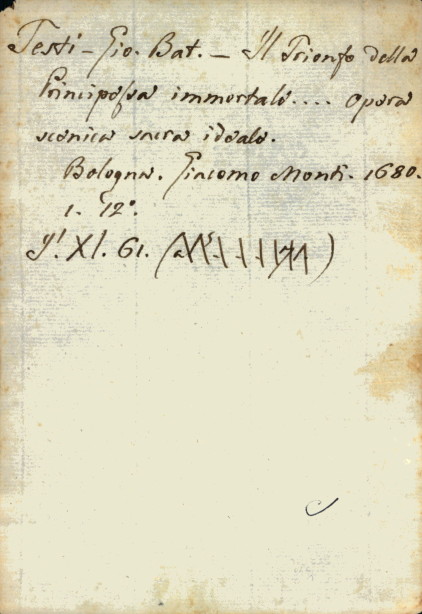 Testi - Gio. Bat. - Il Trionfo della
Principessa immortale.... Opera
scenica sacra ideale.
Bologna. Giacomo Monti. 1680.
1. 12°.
XI. 61.